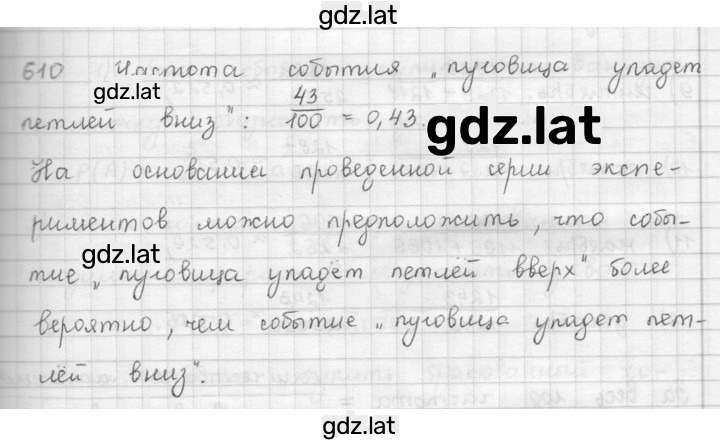 gdz.lat
610 Частота события „пуговица упадет
gdz.lat
петлей вниз": 43/100 = 0,43.
gdz.lat
На основании проведенной серии экспе-
риментов можно предположить, что собы-
gdz.lat
тие „пуговица упадёт петлёй вверх" более
вероятно, чем событие „пуговица упадет пет-
лёй вниз".
gdz.lat